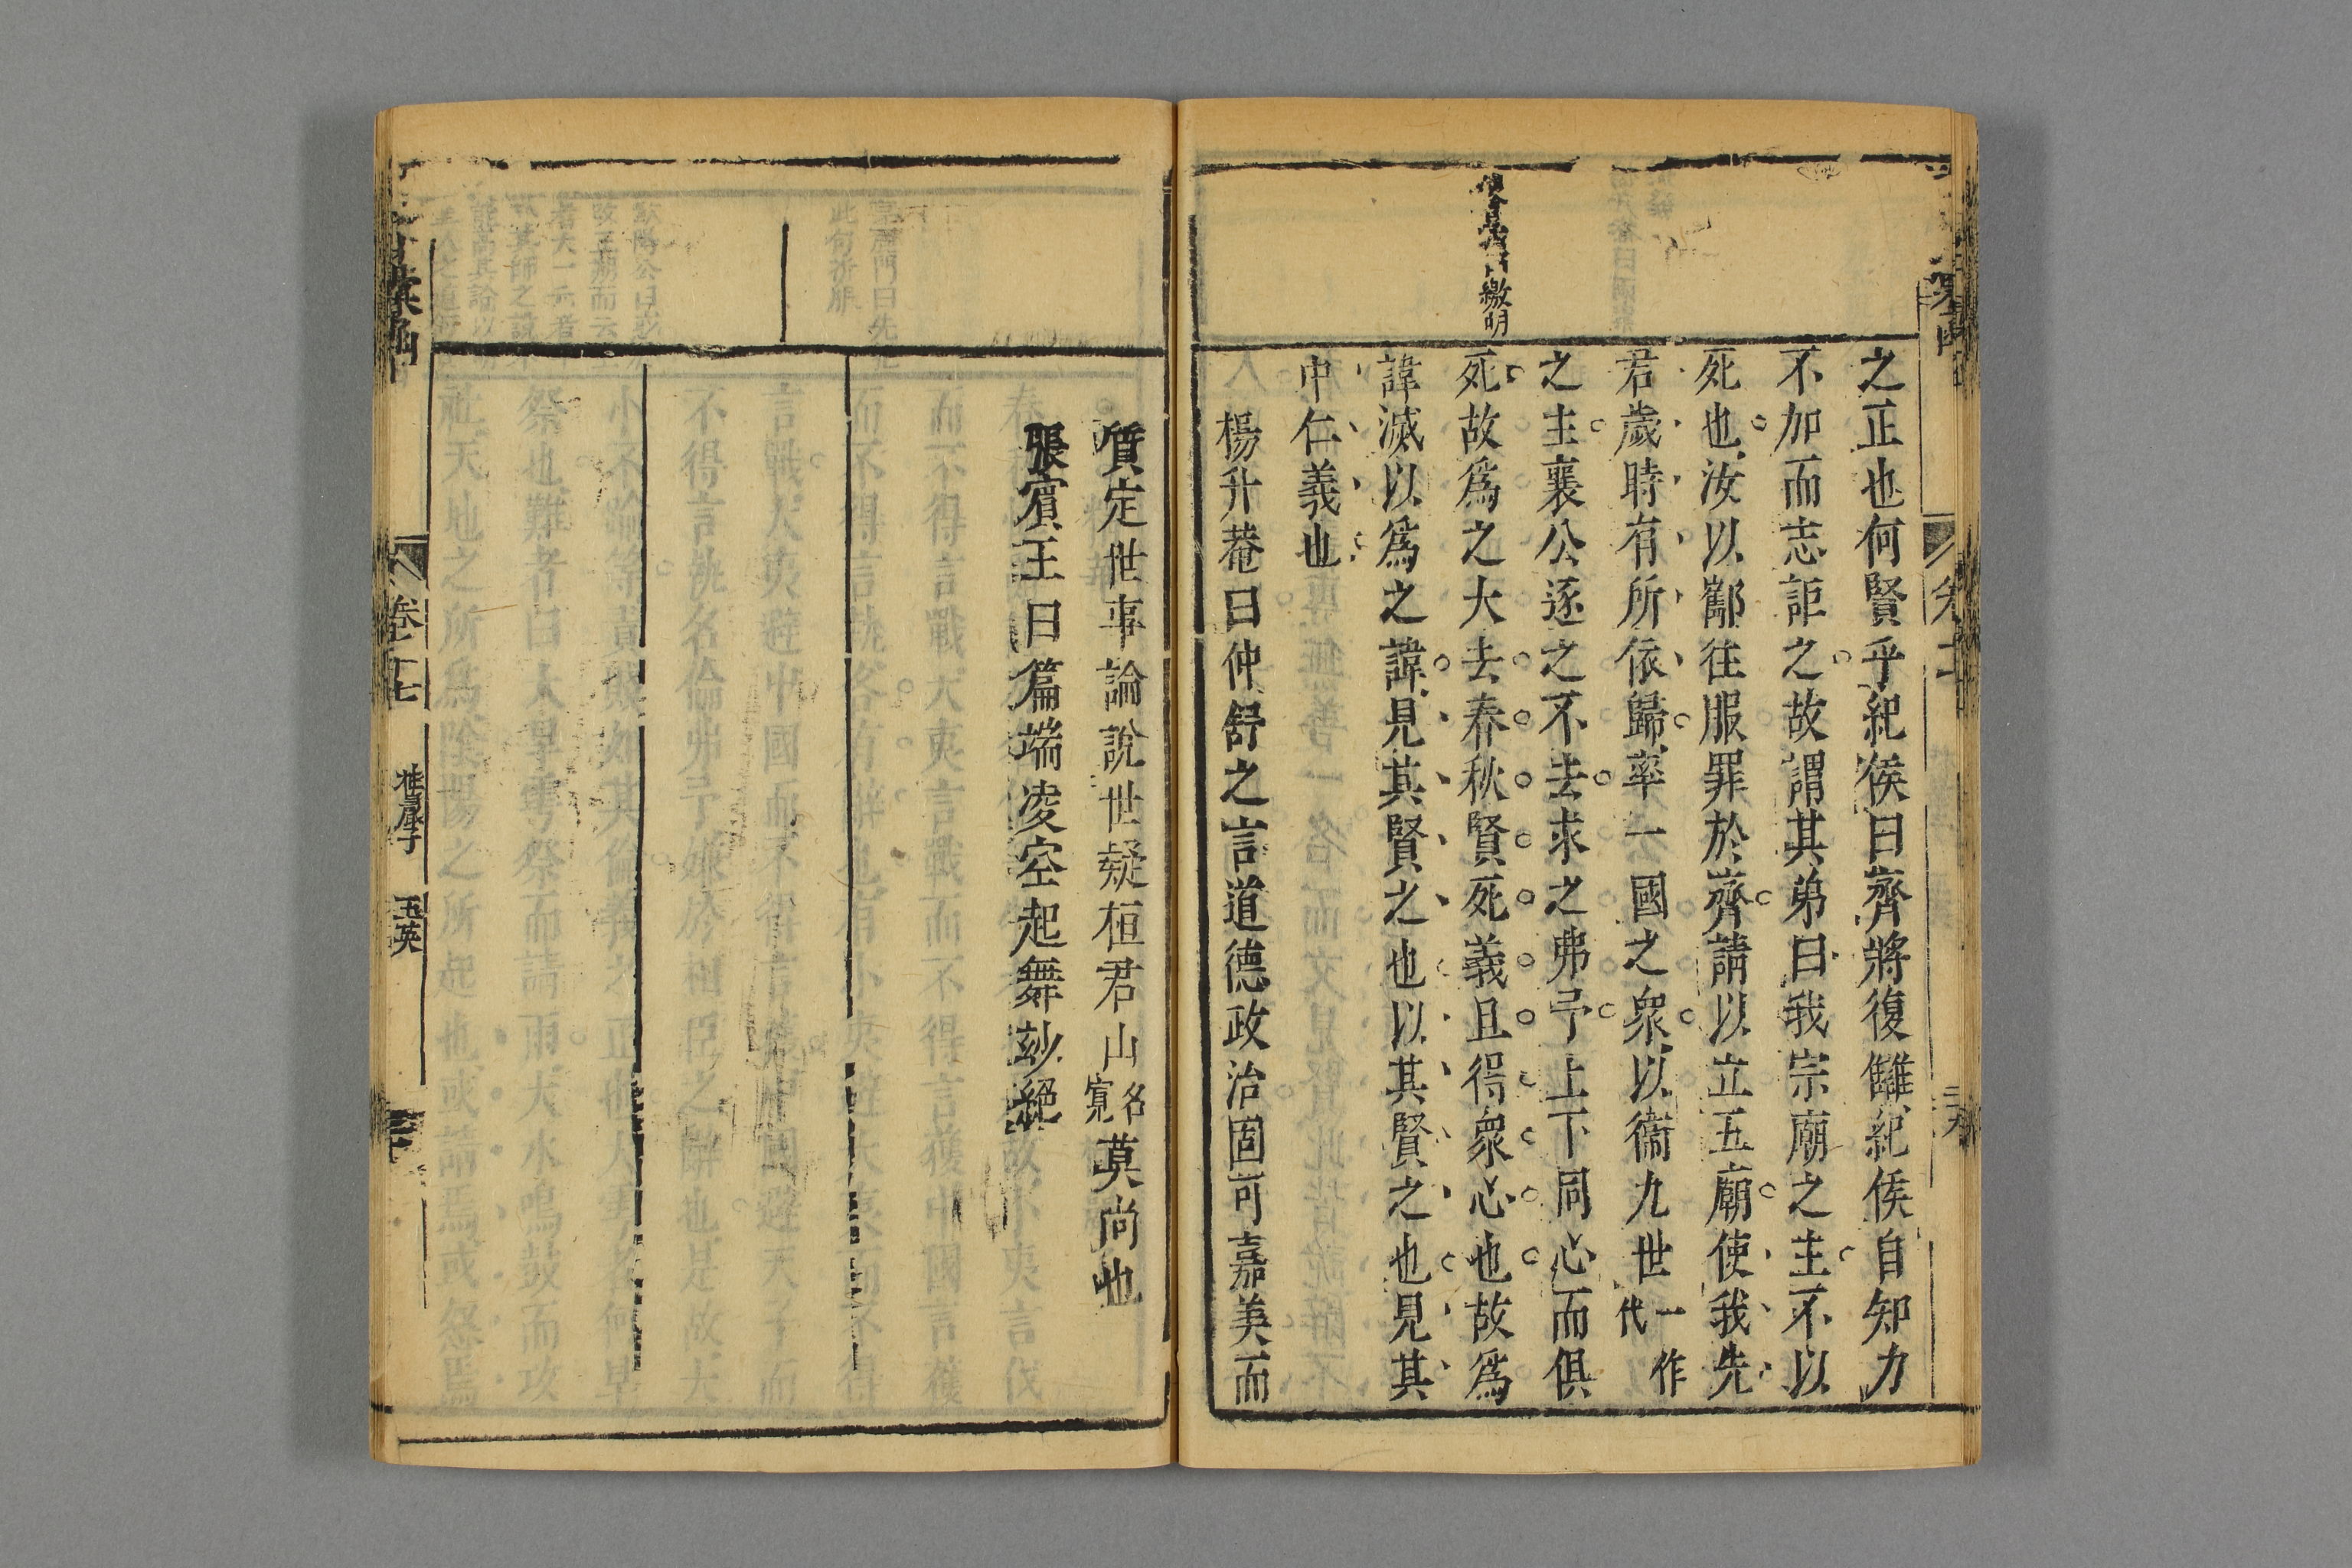 之正也何賢乎紀侯曰齊將復讎紀侯自知力
不加而志詎之故謂其弟曰我宗廟之主不以
死也汝以酅往服罪於齊請以立五廟使我先
君歲時有所依歸率一國之衆以衞九世一作代
之主襄公逐之不去求之弗予上下同心而俱
死故爲之大去春秋賢死義且得衆心也故爲
諱滅以爲之諱見其賢之也以其賢之也見其
中仁義也
楊升菴曰仲舒之言道德政治固可嘉美而
質定世事論說世疑桓君山名寬莫尚也
張賓王曰篇端凌空起舞玅絕
卷十七
桂巖子
玉英